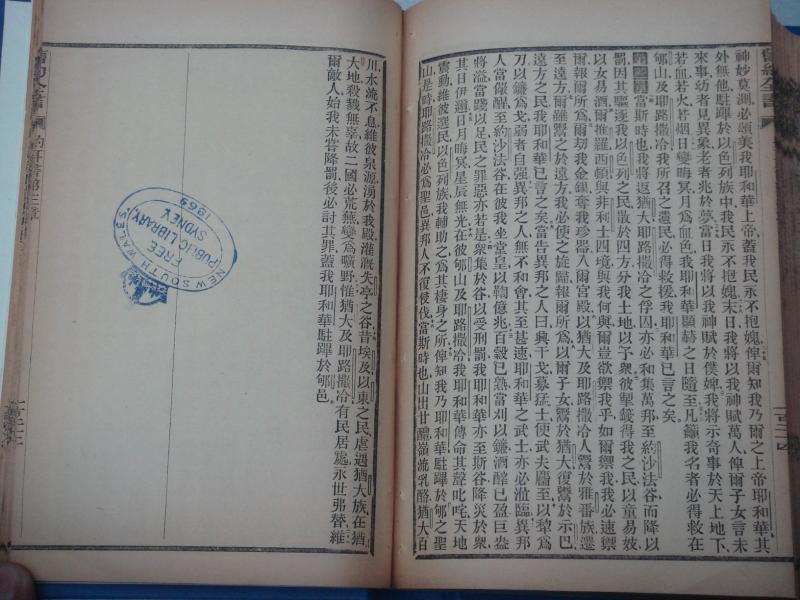 神妙莫測必頌美我耶和華上帝蓋我民永不抱媿俾爾知我乃爾之上帝耶和華其
外無他駐蹕於以色列族中我民永不抱媿末日我將以我神賦萬人俾爾子女言未
來事幼者見異象老者兆於夢當日我將以我神賦於僕婢我將示奇事於天上地下
若血若火若烟日變晦冥月爲血色我耶和華顯赫之日隨至凡籲我名者必得救在
郇山及耶路撒冷我所召之遺民必得救援我耶和華已言之矣
當斯時也我將返猶大耶路撒冷之俘囚亦必和集萬邦至約沙法谷而降以
罰因其驅逐我以色列之民散於四方分我土地以予衆彼掣籤得我之民以童易妓
以女易酒爾推羅西頓與非利士四境與我何與爾豈欲禦我乎如爾禦我我必速禦
爾報爾所爲爾刧我金銀奪我珍器入爾宮殿以猶大及耶路撒冷人鬻於雅番族遷
至遠方爾雖鬻之於遠方我必使之旋歸報爾所爲以爾子女鬻於猶大復鬻於示巴
遠方之民我耶和華已言之矣當告異邦之人曰興干戈募猛士使武夫麕至以犂爲
刀以鐮爲戈弱者自强異邦之人無不和會其至甚速耶和華之武士亦必涖臨異邦
人當儆醒至約沙法谷在彼我坐堂皇以鞫億兆百穀已熟當刈以鐮酒醡已盈巨盎
將溢當踐以足民之罪惡亦若是衆集於谷以受刑罰我耶和華亦至斯谷降災於衆
其日伊邇日月晦冥星辰無光在彼郇山及耶路撒冷我耶和華傳命其聲叱咤天地
震動維彼選民以色列族我輔助之爲其棲身之所俾知我乃耶和華駐蹕於郇之聖
山是時耶路撒冷必爲聖邑異邦人不復侵伐當斯時也山出甘醴嶺流乳酪猶大百
舊約全書
一百二十四
川水流不息維彼泉源湧於我殿灌漑失亭之谷昔埃及以東之民虐遇猶大族在猶
大地殺戮無辜故二國必荒蕪變爲曠野惟猶大及耶路撒冷有民居處永世弗替維
爾敵人始我未嘗降罰後必討其罪蓋我耶和華駐蹕於郇邑
NEW SOUTH WALES
FREE
PUBLIC LIBRARY
SYDNEY
1969
舊約全書
約耳書第三章